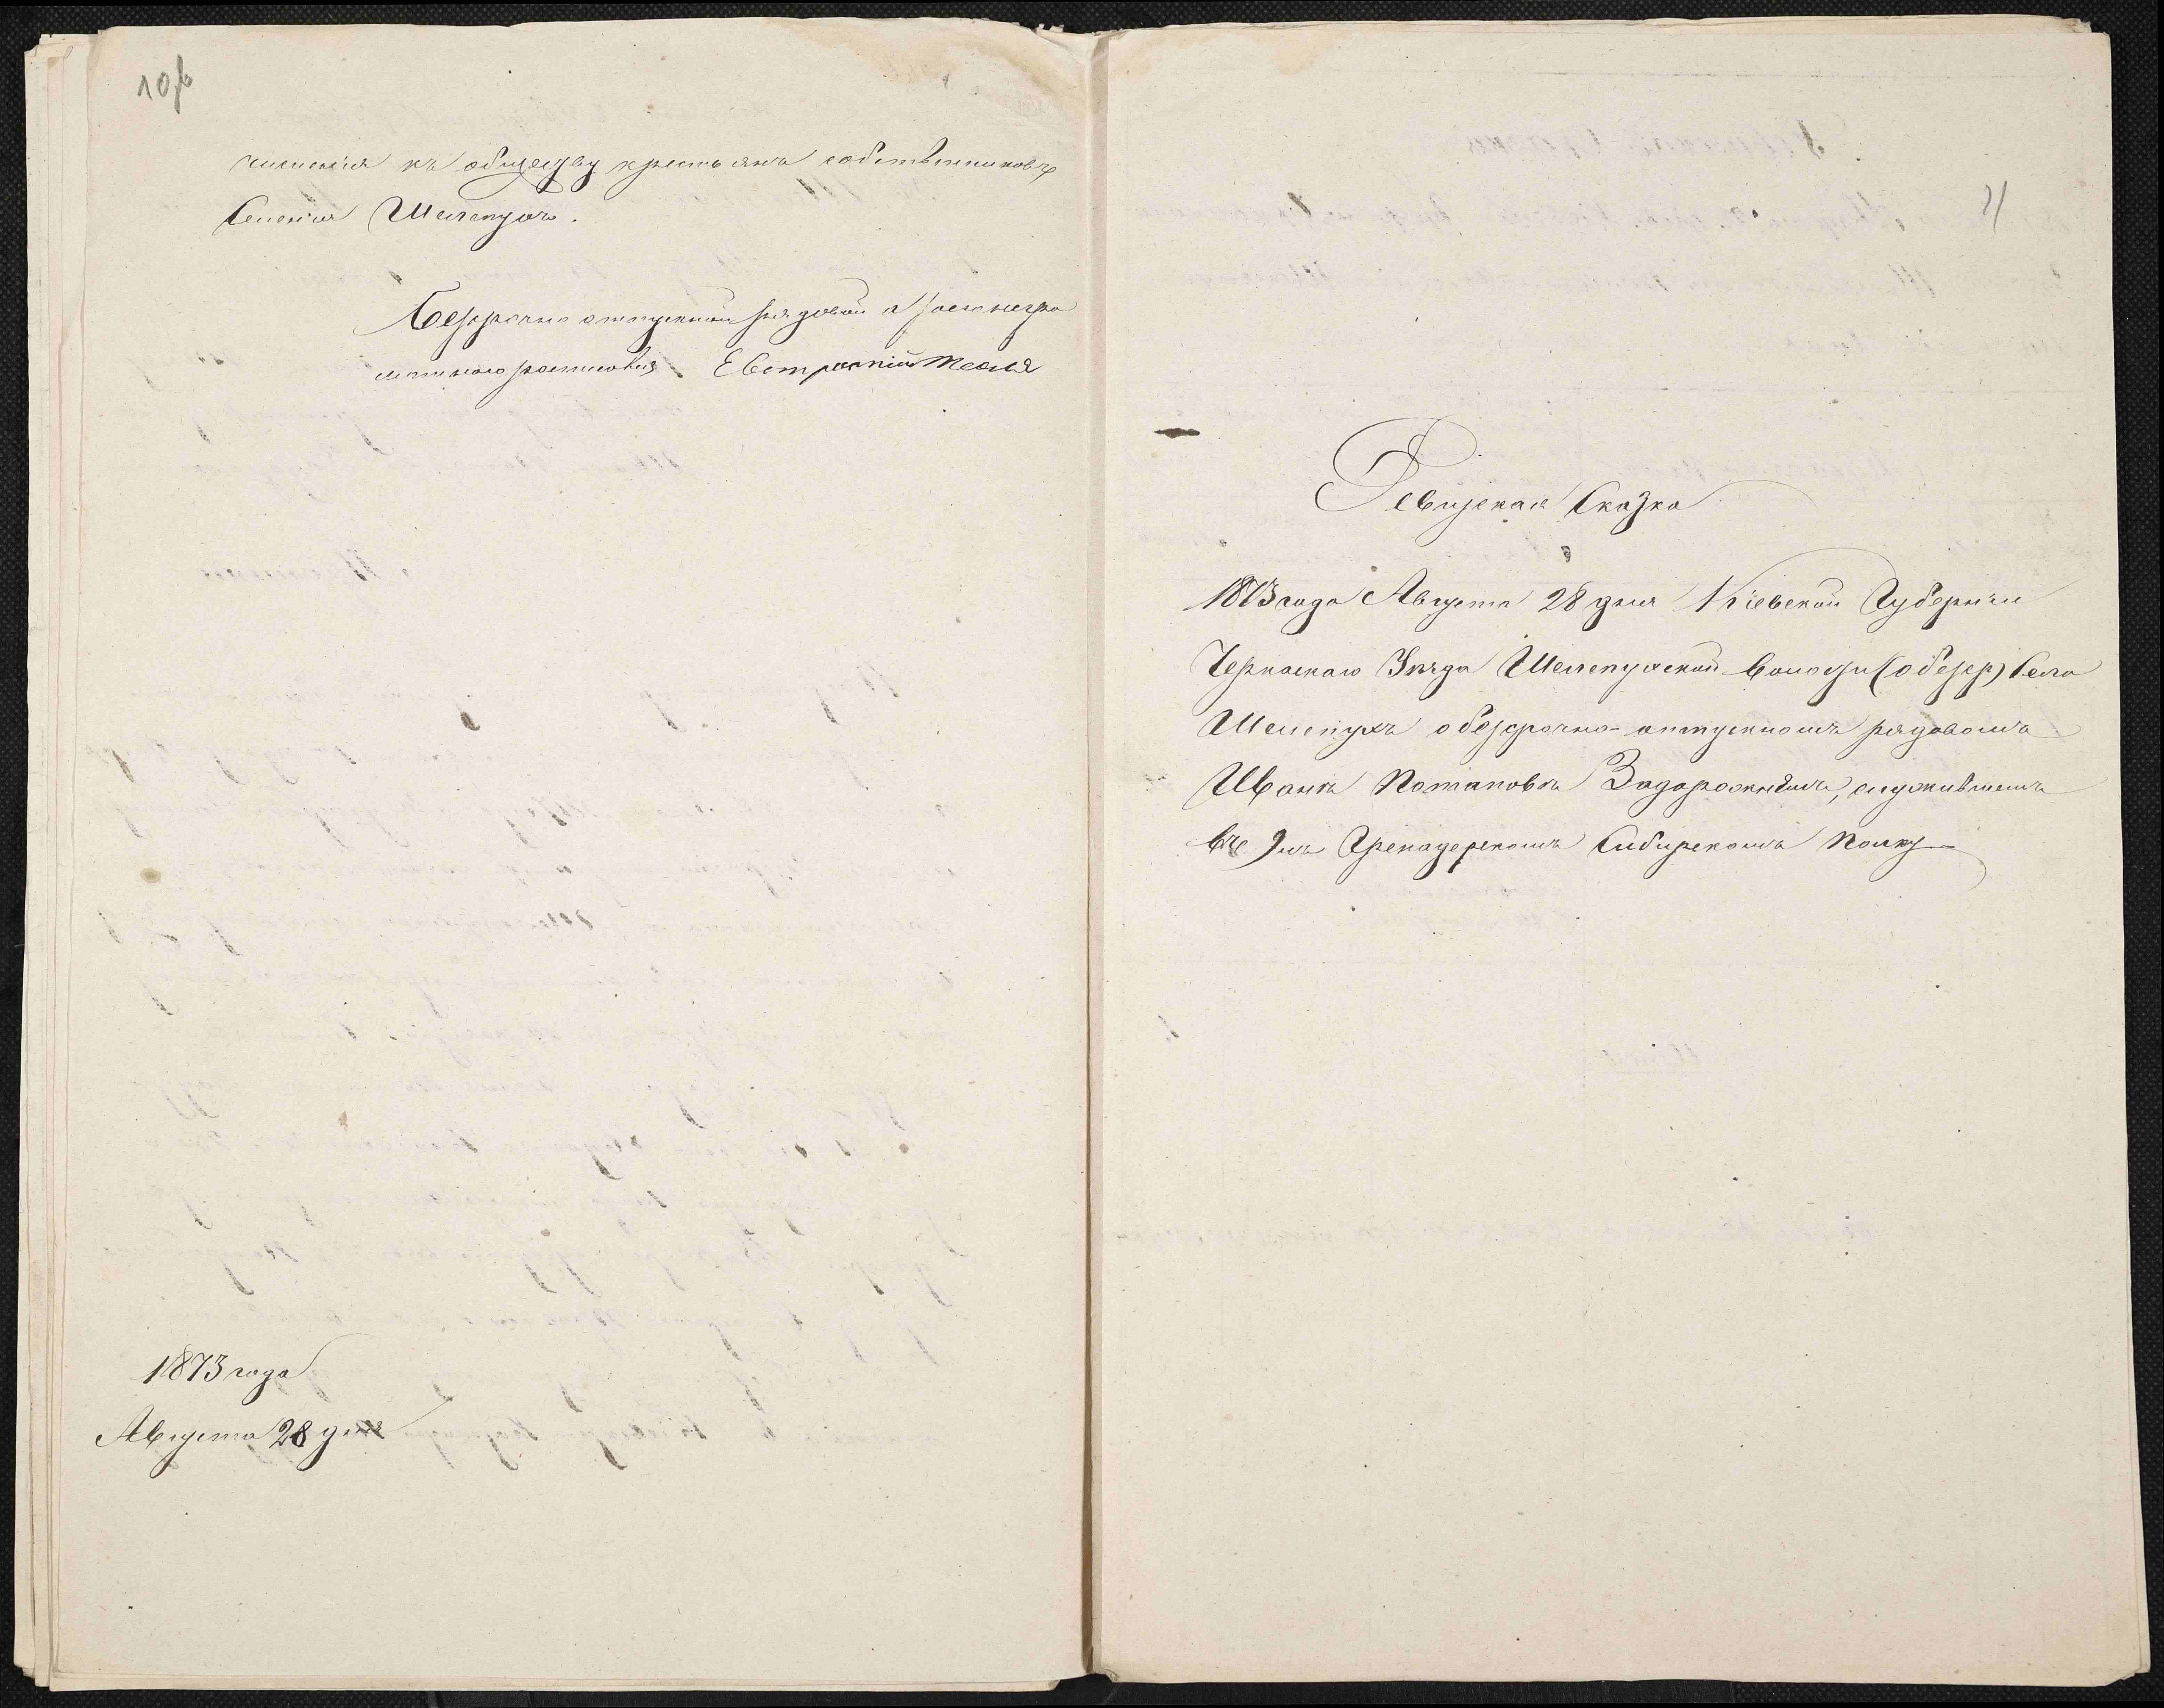 10б
числения къ обществу крестьянъ собственниковъ
селения Шелепухъ.
Безсрочно отпускной рядовой а засего негра
мотного росписовся Евстратий Тесля
1873 года
Августа 28 дня
11
Ревизская Сказка
1873 года Августа 28 дня Кіевской Губерніи
Черкаскаго Уезда Шелепухской волости (о безср) села
Шелепухъ о безсрочно-отпускномъ рядовомъ
Иванѣ Потаповѣ Задорожнымъ, служившемъ
въ 9мъ Гренадерскомъ Сибирскомъ полку